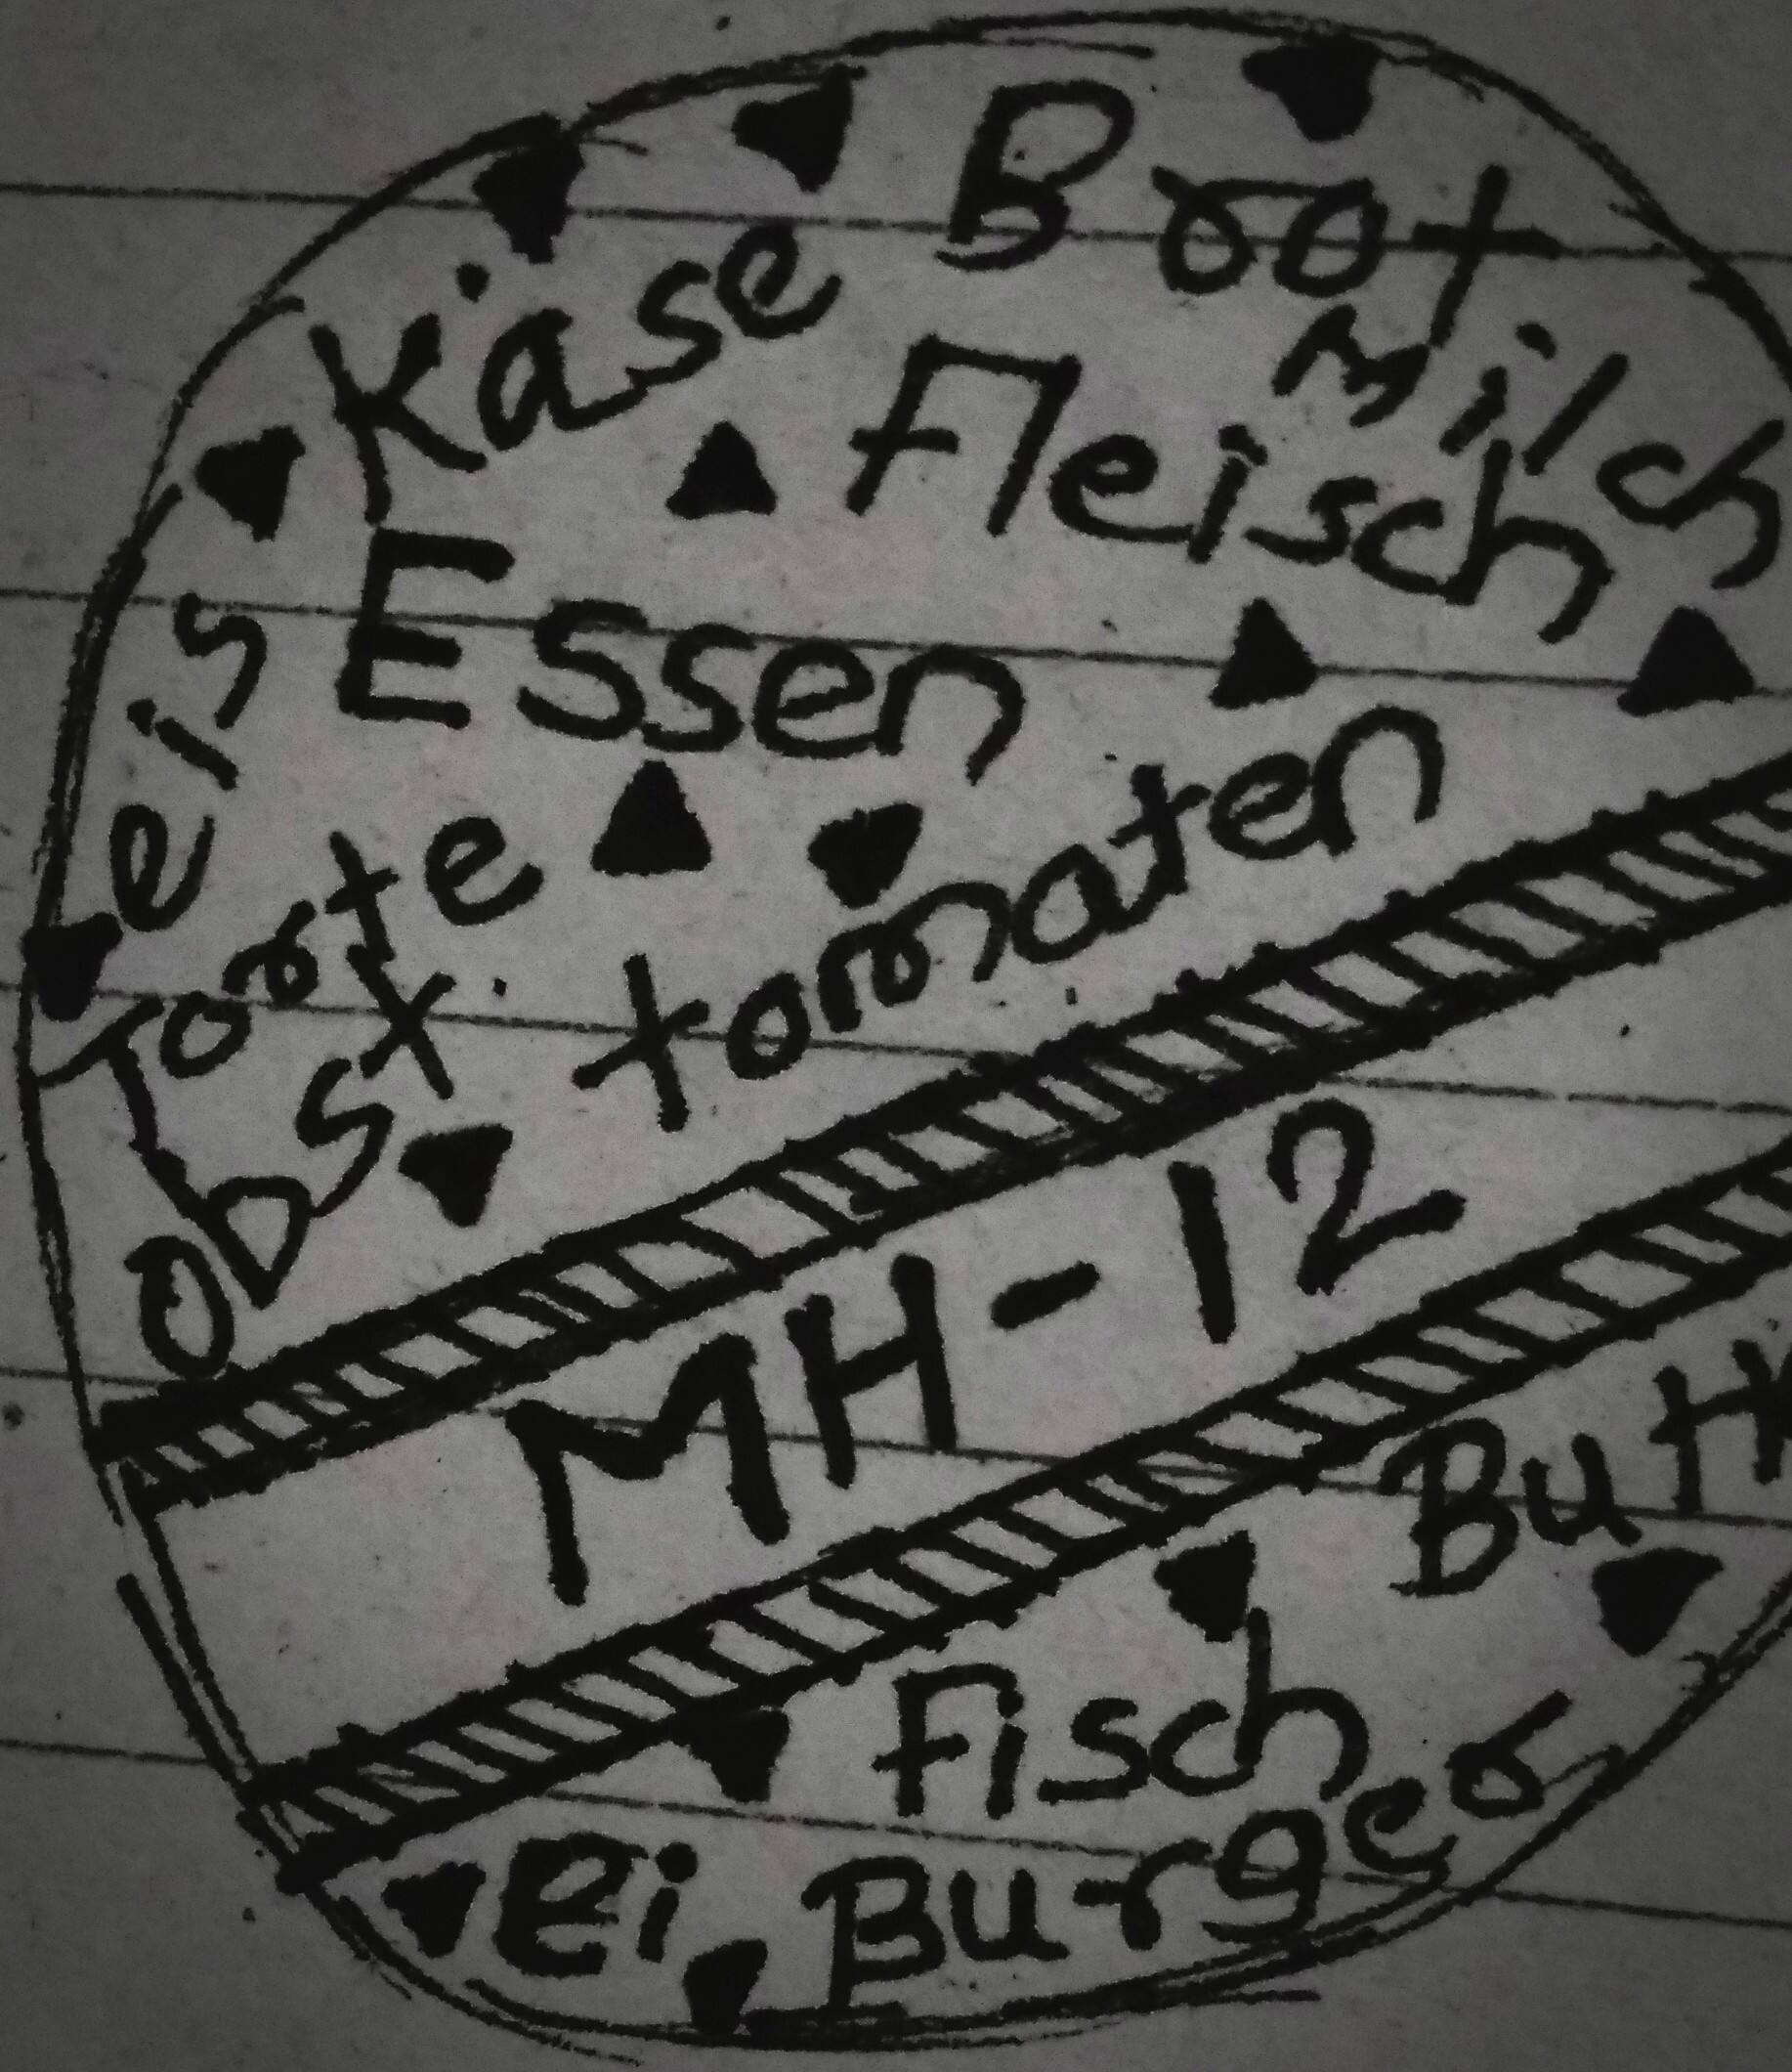 Brot
Käse
milch
fleisch
eis
Essen
Torte
tomaten
obst
MH-12
fisch
ei
Burger